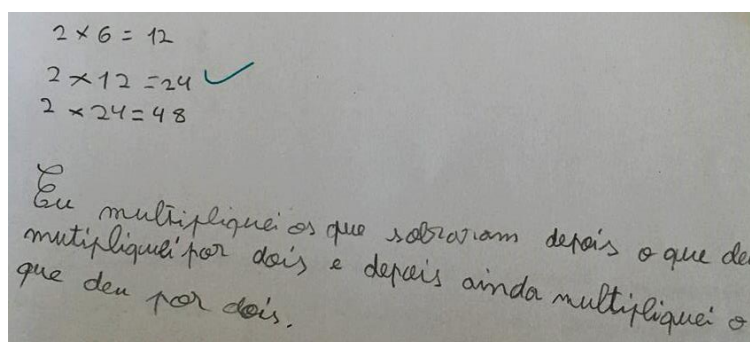 2 × 6 = 12
2 × 12 = 24
2 × 24 = 48
Eu multipliquei os que sobraram depois o que deu
mutipliquei por dois e depois ainda multipliquei o
que deu por dois.